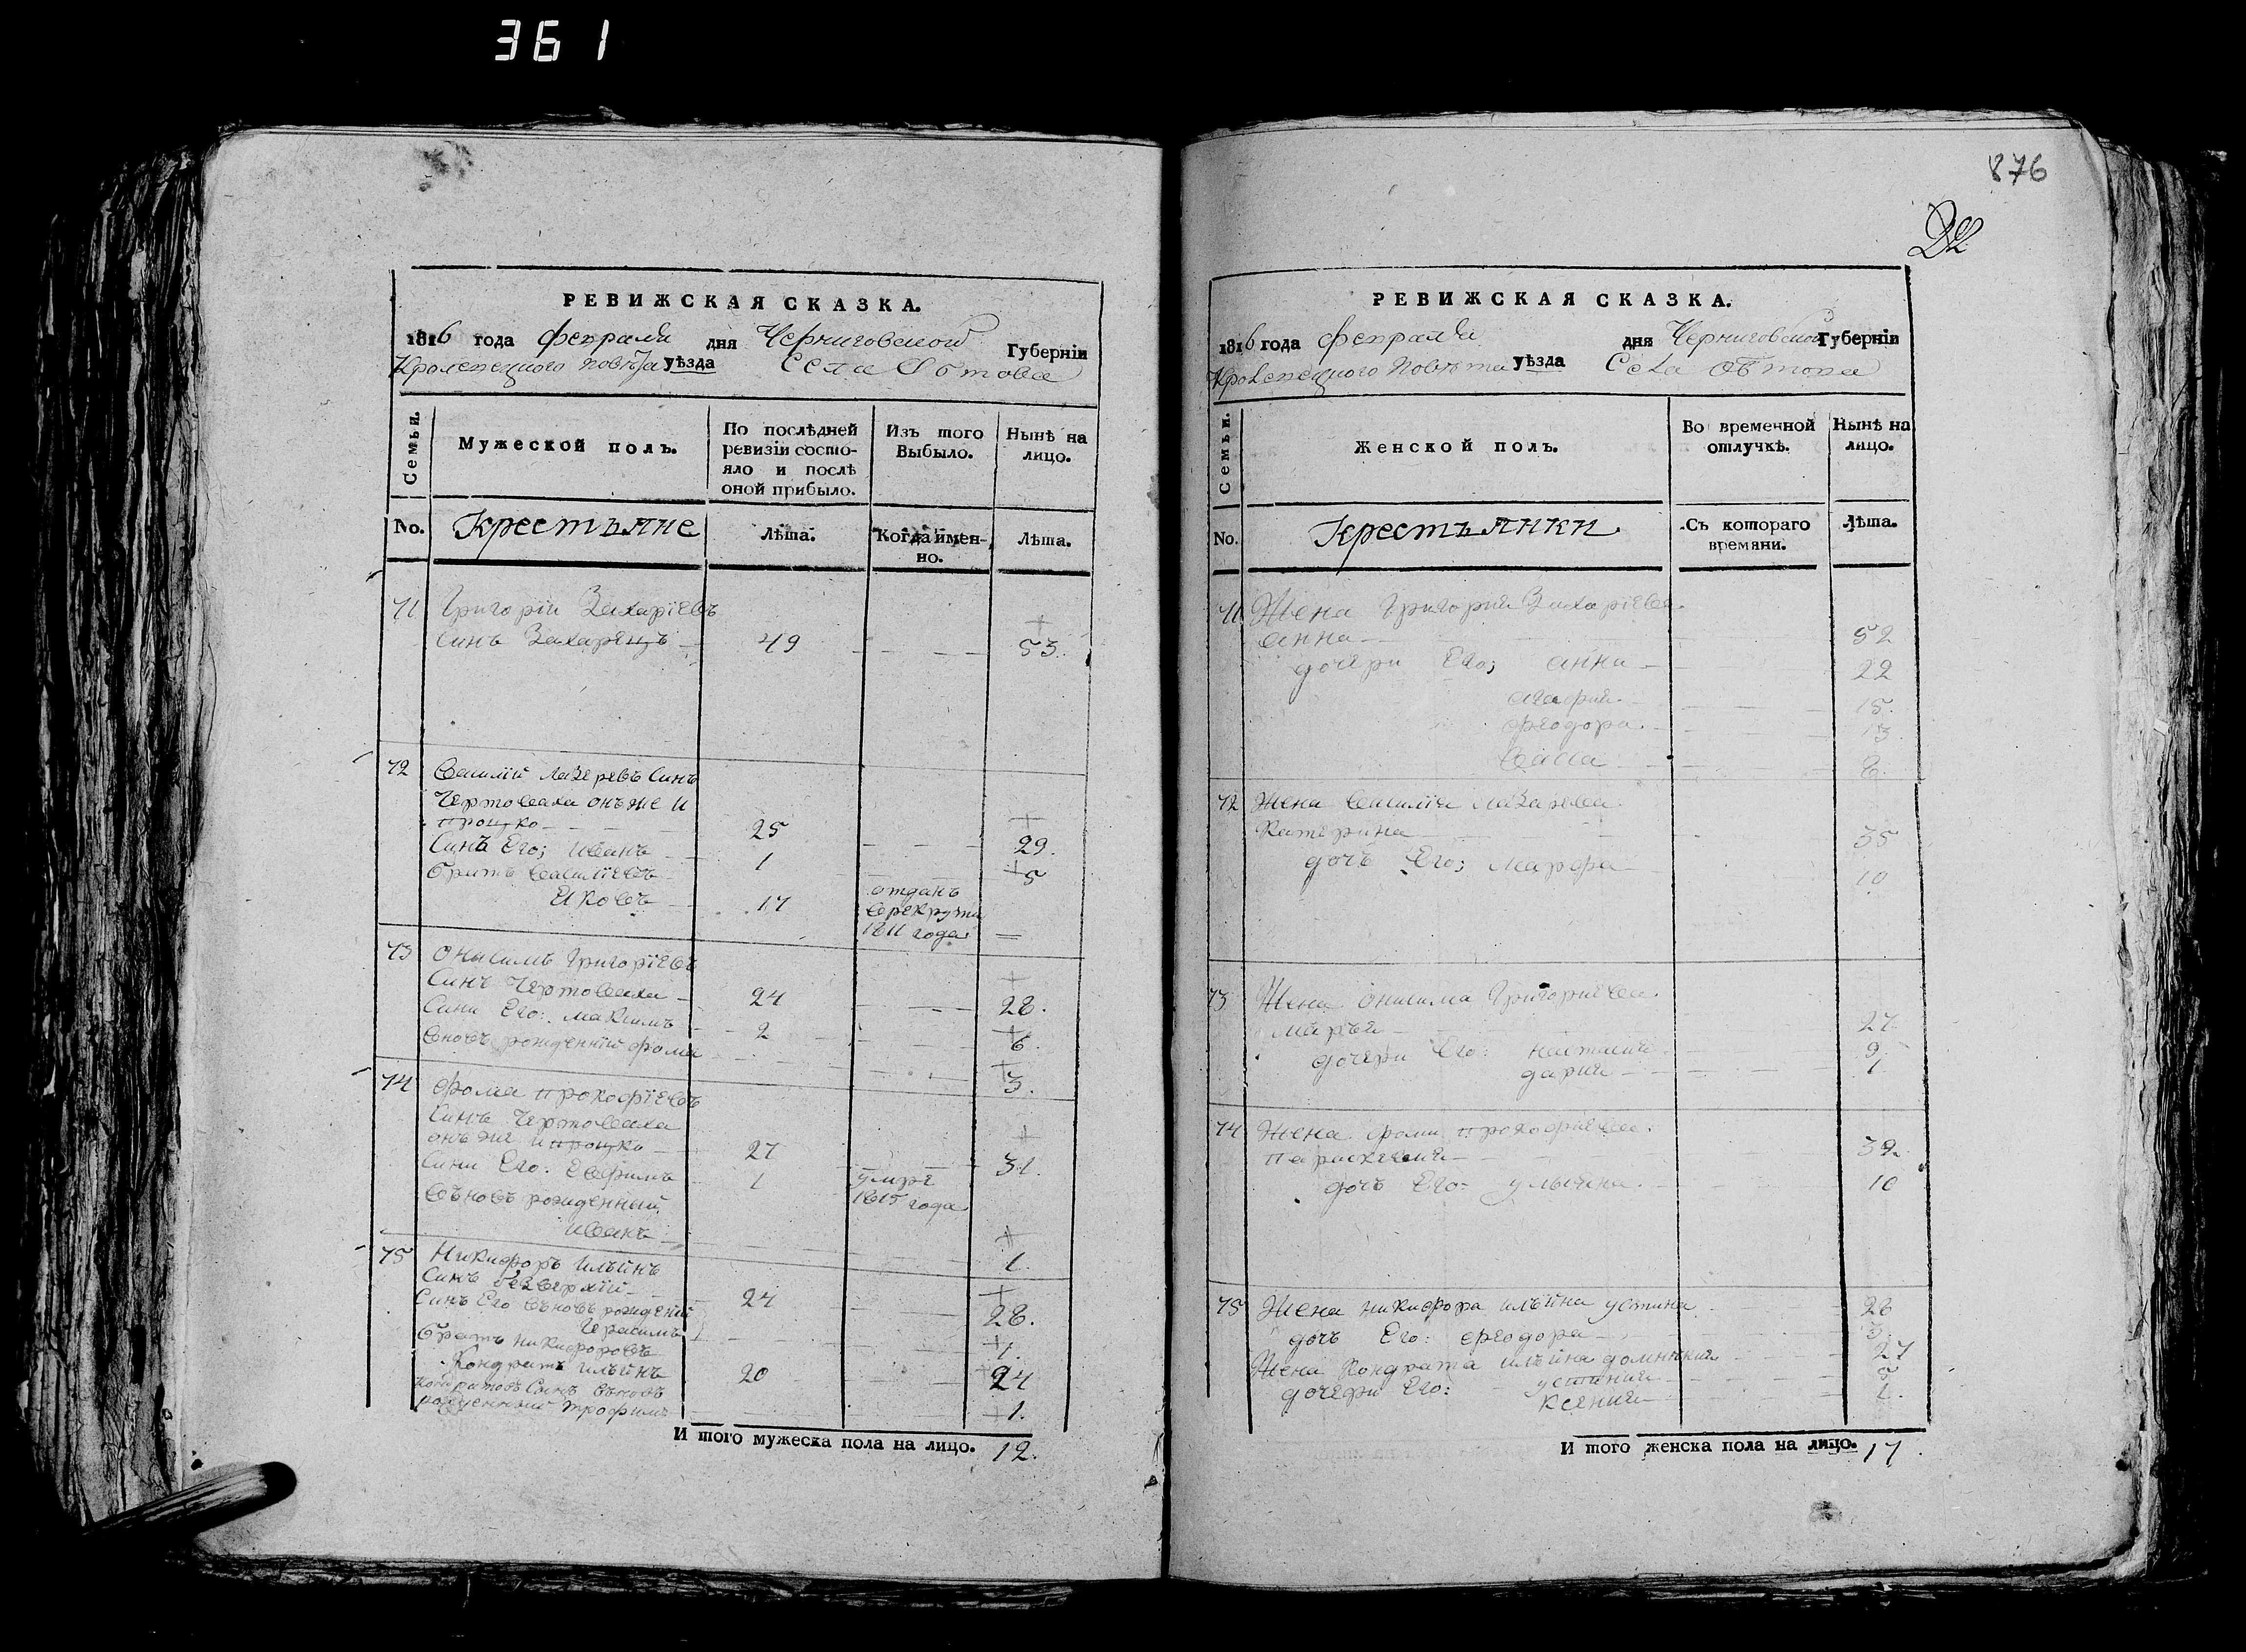 361
РЕВИЖСКАЯ СКАЗКА.
1816 года февраля дня Черниговской Губерніи
Кролевецкого повѣта уѣзда Села
Семьи.
Мужеской полъ.
По послѣдней ревизіи состояло и послѣ оной прибыло.
Изъ того Выбыло.
Нынѣ на лицо.
No.
Крестьяне
Лѣта.
Когда именно.
Лѣта.
71 Григорій Захаріевъ
синъ Захарецъ 49 53.
72 Василій Лазаревъ синъ
Чертовала онъ же и
процко 25 29.
Синъ Его; иванъ 1 5
братъ василіевъ
Яковъ 17 отданъ
врекруты
1811 года
73 Онисимъ Григоріевъ
Синъ Чертовала 24 28.
Сини Его: максимъ 2 6.
вновъ рожденній фома 3.
74 фома прокофіевъ
Синъ Чертовала
онъ же и процко 27 31.
Сини Его: Евфимъ 1 умре
вьновъ рожденный 1815 года
иванъ 1.
75 Никифоръ ильинъ
Синъ 24 28.
Синъ Его вьновъ рожденій
Герасимъ 1.
братъ никифоровъ
Кондратъ ильинъ 20 24
кондратовъ Синъ вьновъ
рожденній трофимъ 1.
И того мужеска пола на лицо. 12.
876
РЕВИЖСКАЯ СКАЗКА.
1816 года февраля дня Черниговской Губерніи
Кролевецкого повѣта уѣзда Села
Семьи.
Женской полъ.
Во временной отлучкѣ.
Нынѣ на лицо.
No.
Крестьянки
Съ котораго времяни.
Лѣта.
71 Жена Григория Захаріева
анна 52
дочери Его; анна 22
15.
феодора 13.
8.
72 Жена василія лазарева
Катерина 35
дочъ Его; марфа 10
73 Жена онисима Григориева
маръя 27.
дочери Его: настасия 9.
дария 1
74 Жена фоми прокофиева
параскевия 32.
дочъ Его: улияна 10
75 Жена никифора ильина устина 28
дочъ Его: феодора 3.
Жена Кондрата ильина домникия 27
дочери Его: устиния 5
Ксения 1.
И того женска пола на лицо. 17.